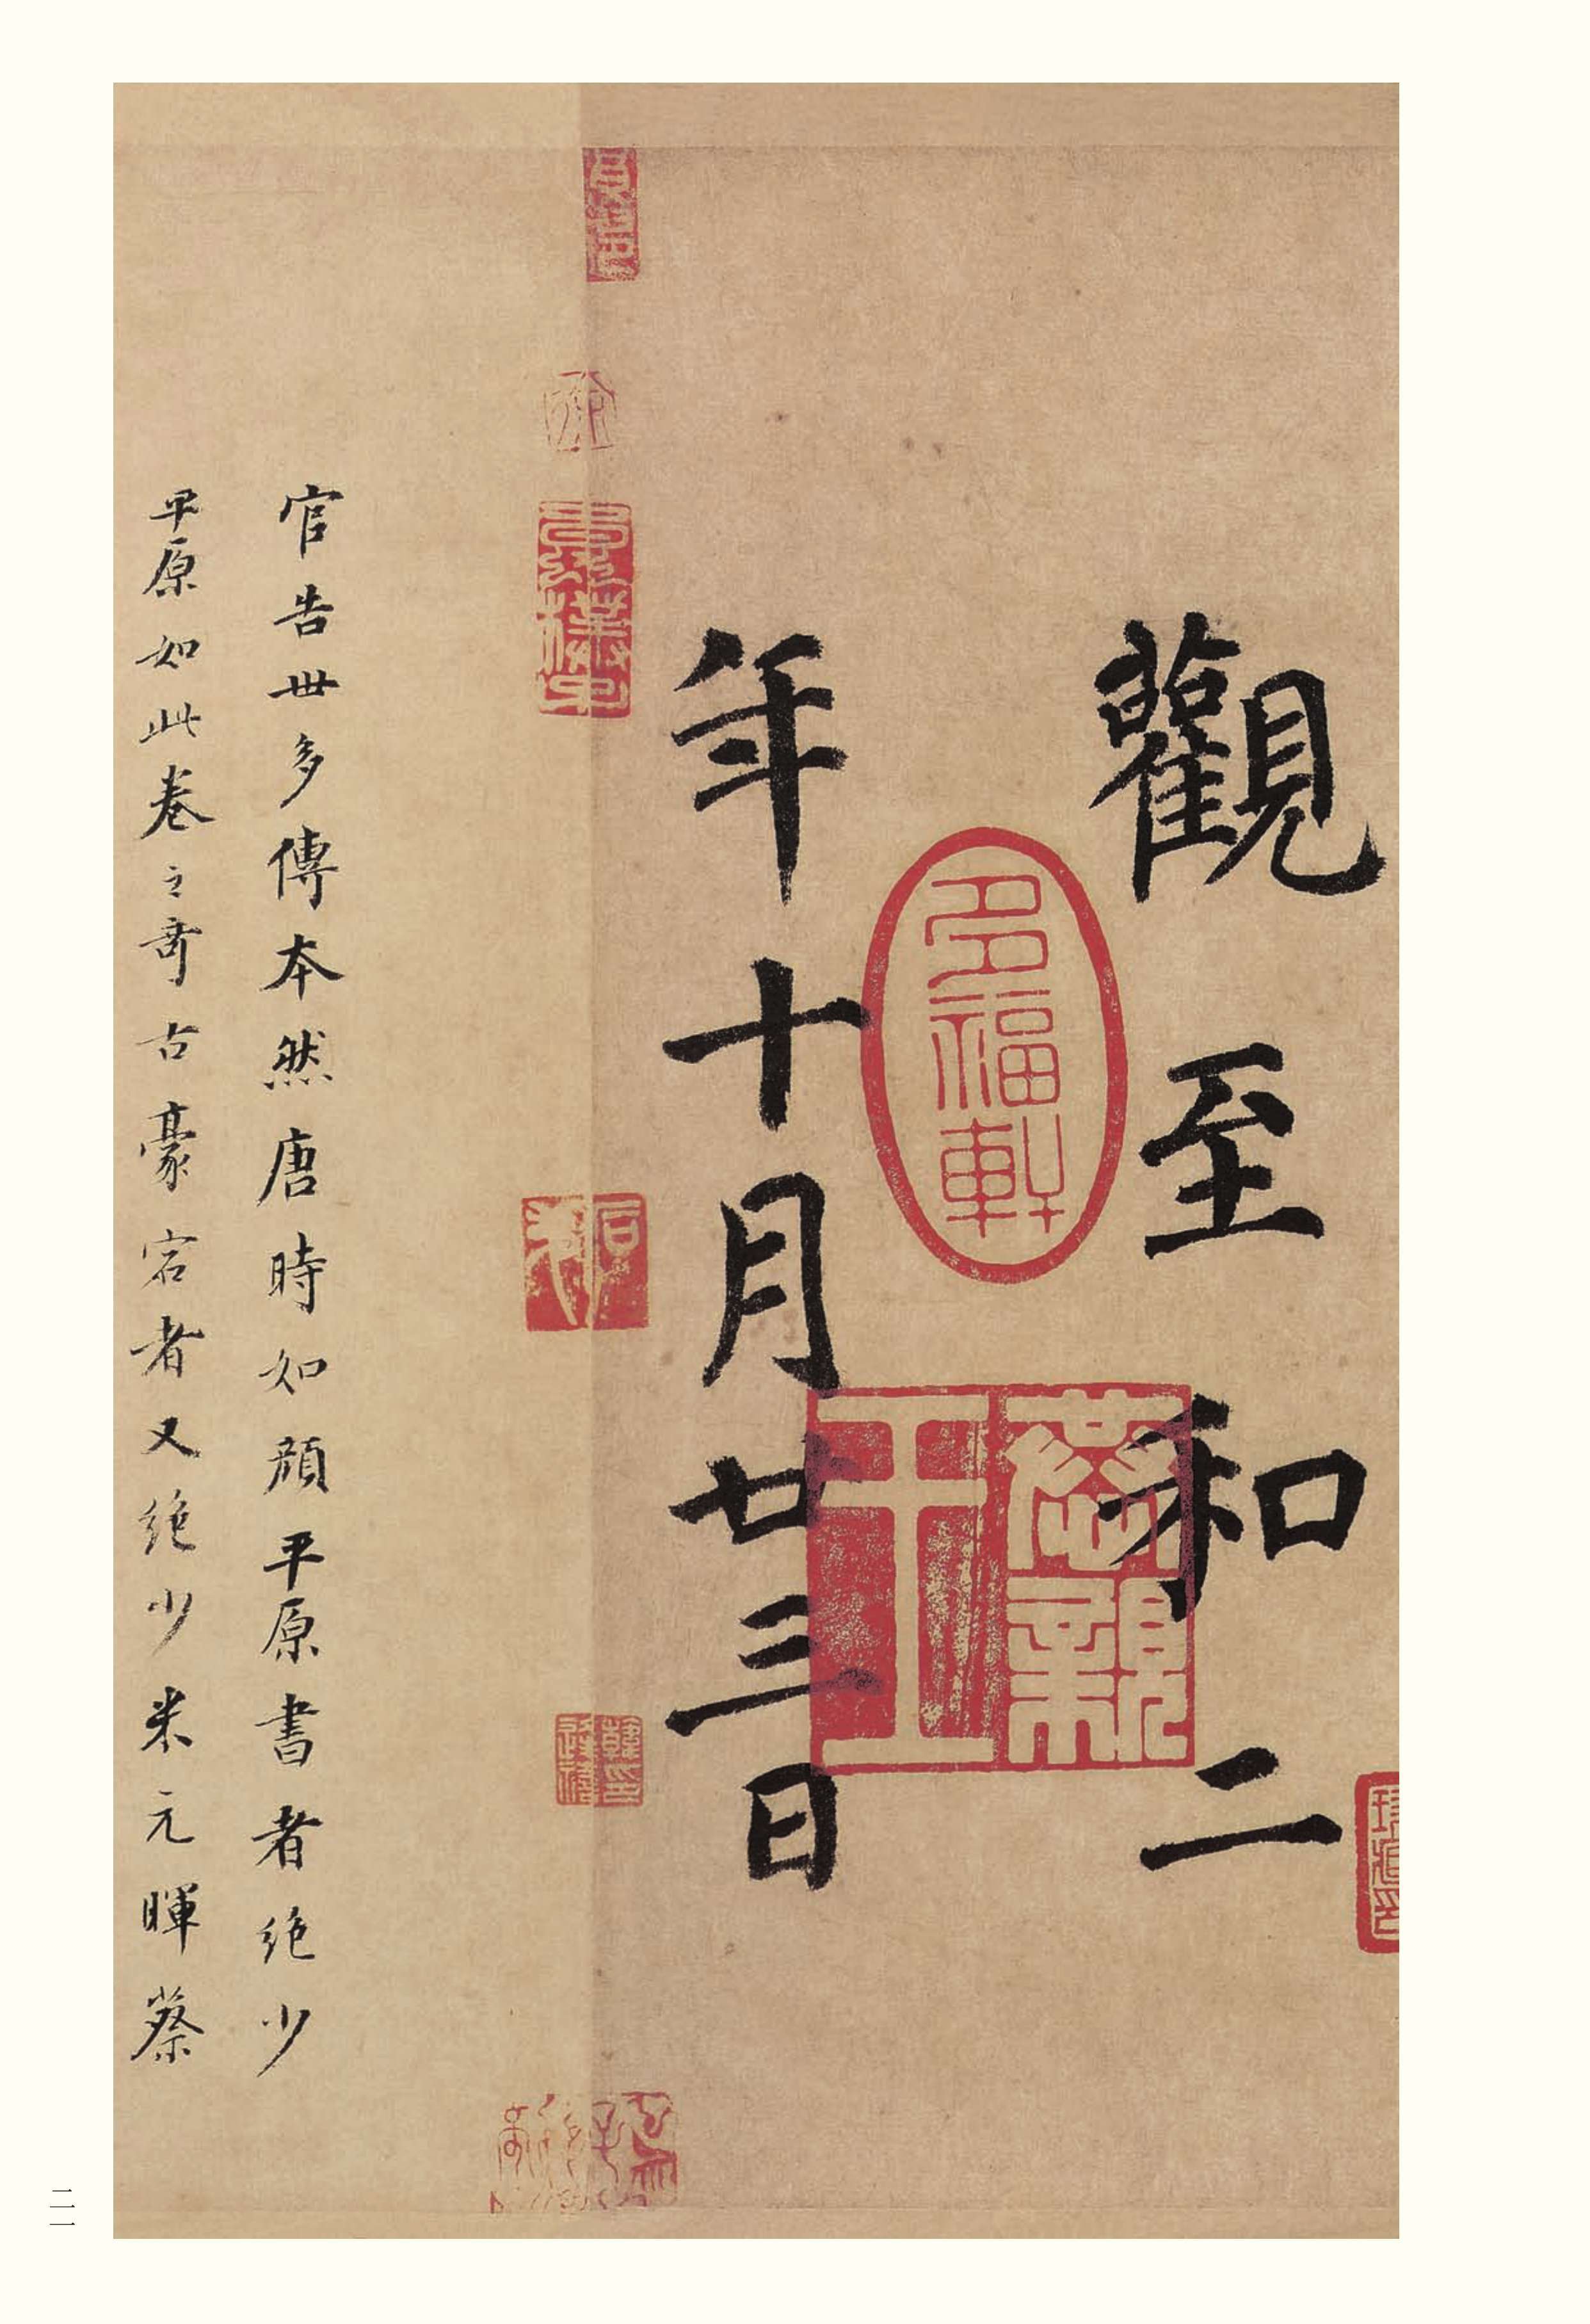 觀至和二
年十月廿三日
官告世多傳本然唐時如顔平原書者絶少
平原如此卷之奇古豪宕者又絶少米元暉蔡
多福軒
恭親
王
韓印
二一